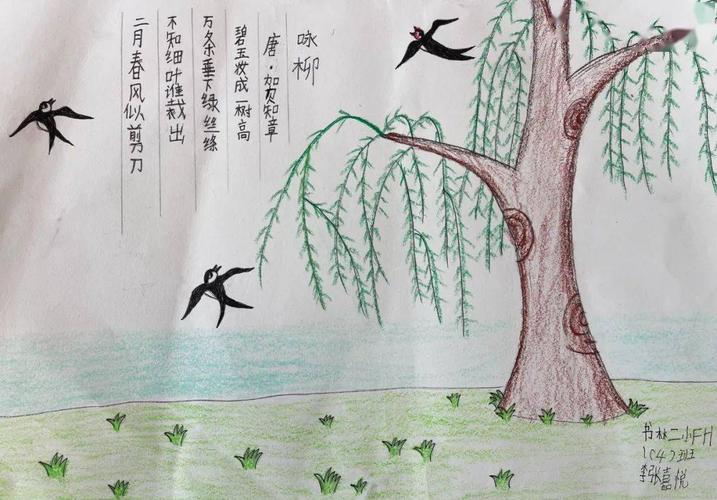 咏柳
唐·贺知章
碧玉妆成一树高
万条垂下绿丝绦
不知细叶谁裁出
二月春风似剪刀
书林二小FH
1(4)班
李张嘉悦